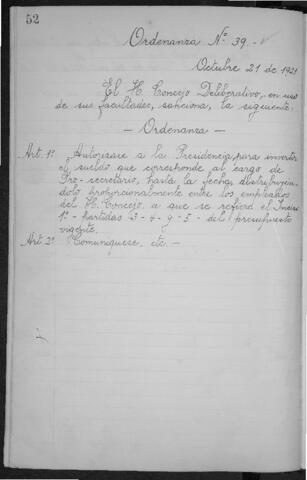 52
Ordenanza Nº 39.-
Octubre 21 de 1921
El H. Concejo Deliberativo, en uso
de sus facultades, sanciona, la siguiente.
— Ordenanza —
Art. 1º Autorizase a la Presidencia, para invertir
el sueldo que corresponde al cargo de
Pro-secretario, hasta la fecha, distribuyen
dolo proporcionalmente entre los empleados
del H. Concejo, a que se refiere el Inciso
1º - Partidas 3-4- y 5 - del presupuesto
vigente.
Art. 2º Comuniquese, etc. —